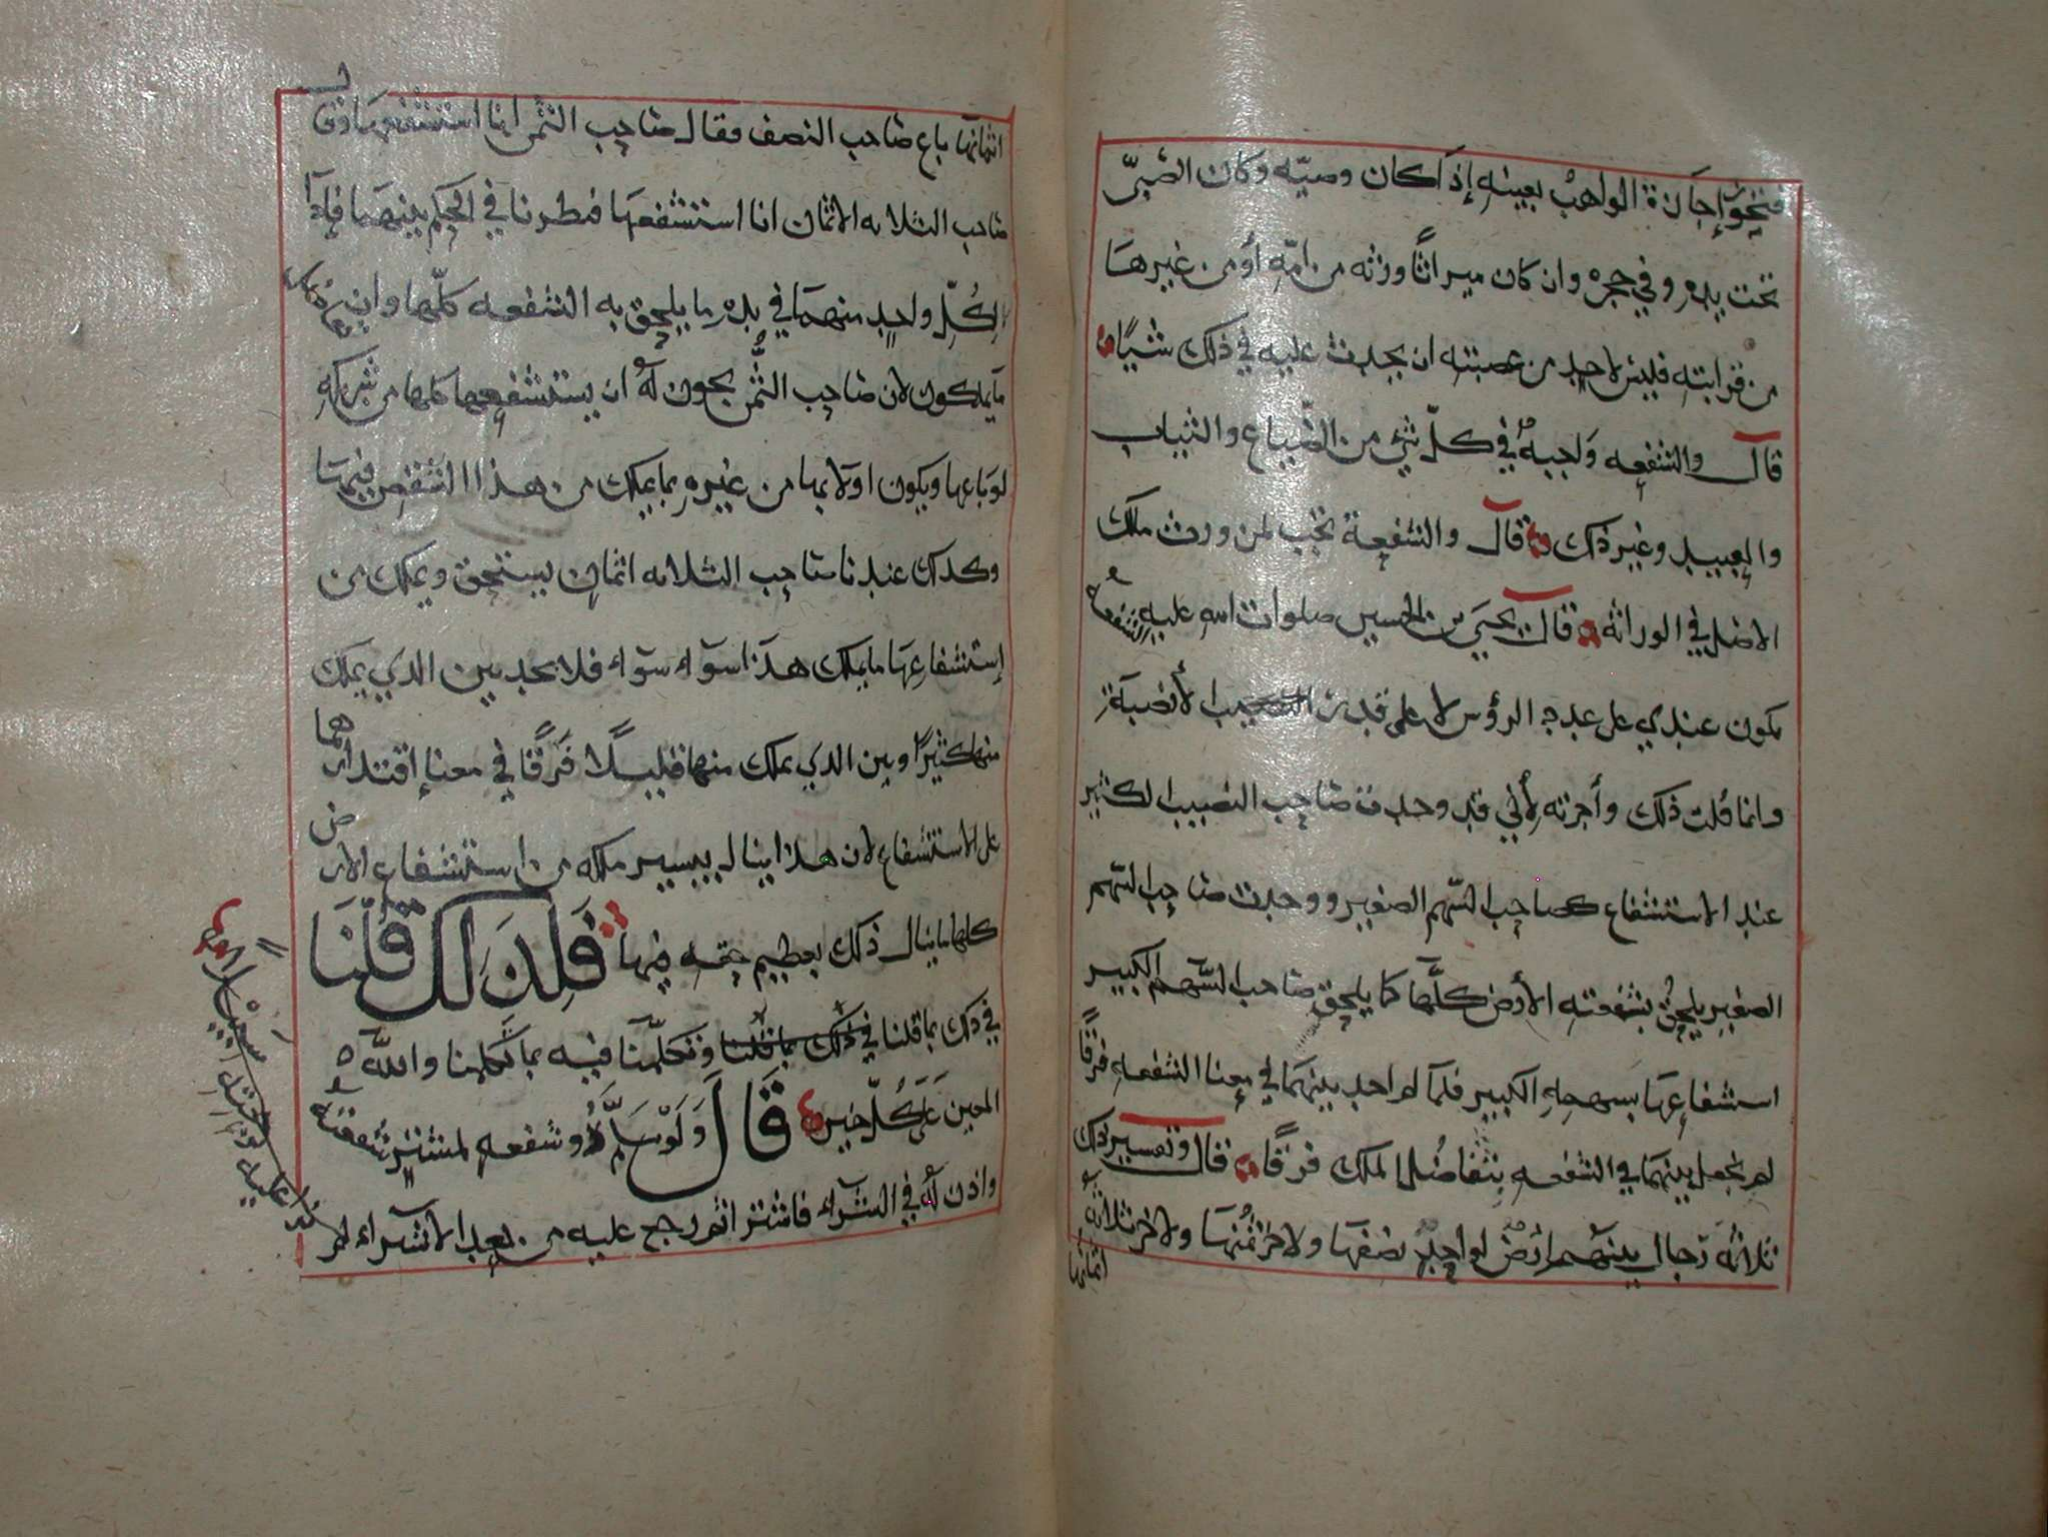 فتجوز إجازة الواهب بعينه إذا كان وصيّه وكان الصّبيّ
تحت يده وفي حجره وان كان ميراثًا ورثه من امّه أو من غيرها
من قرابته فليس لاحد من عصبته ان يحدث عليه في ذلك شيًا
قال والشفعه واجبهٌ في كلّ شيٍ من الضّياع والثياب
والعبيد وغير ذلك قال والشفعة تجب لمن ورث ملك
الاصل في الوراثه قال يحيى بن الحسين صلوات الله عليه الشفعهُ
تكون عندي على عدد الرؤس لا على قدر الأنصبآءِ
وانما قلت ذلك وأجزته لأني قد وجدت صاحب النصيب الكثير
عند الاستشفاع كصاحب السّهم الصغير ووجدت صاحب السّهم
الصغير يلحقُ بشفعته الأرض كلّها كما يلحق صاحب السّهم الكبير
استشفاعها بسهمهِ الكبير فلمّا لم اجد بينهما في معنا الشفعهِ فرقًا
لم نجعل بينهما في الشفعه بتفاضل الملك فرقًا قال وتفسير ذلك
ثلاثه رجال بينهم ارضٌ لواحدٍ نصفها ولاخر ثمُنها ولاخر ثلاثه
اثمانها
اثمانها باع صاحب النصف فقال صاحب الثمن انا استشفعها وقال
صاحب الثلاثه الاثمان انا استشفعها فنظرنا في الحكم بينهما فإذا
لكُلِّ واحدٍ منهما في يده ما يلحق به الشفعه كلّها وان
ما يملكون لان صاحب الثُّمن يجوز لهُ ان يستشفعها كلها من شريكهِ
لو باعها ويكون اولا بها من غيرهِ بما يملك من هذا الشقص فيها
وكذلك عندنا صاحب الثلاثه اثمان يستحق ويملك من
إستشفاعها ما يملك هذا سوآء سوآء فلا نجد بين الذي يملك
منها كثيرًا وبين الذي يملك منها قليلًا فَرقًا في معنا إقتدارهما
على الاستشفاع لان هذا ينال بيسير ملكه من استشفاع الارض
كلها ما ينال ذلك بعظيم حقّه فيها فَلِذَلك قُلنَا
في ذلك بما قلنا في ذلك بما قلنا وتكلّمنا فيه بما تكلمنا والله
المعين عَلَى كُلّ خيرٍ قَالَ وَلَوْ سَلَّم ذُو شفعهٍ لمشترٍ شفعتهُ
واذن لهُ في الشرآء فاشترا ثم رجع عليه من بعد الاشترآء لم